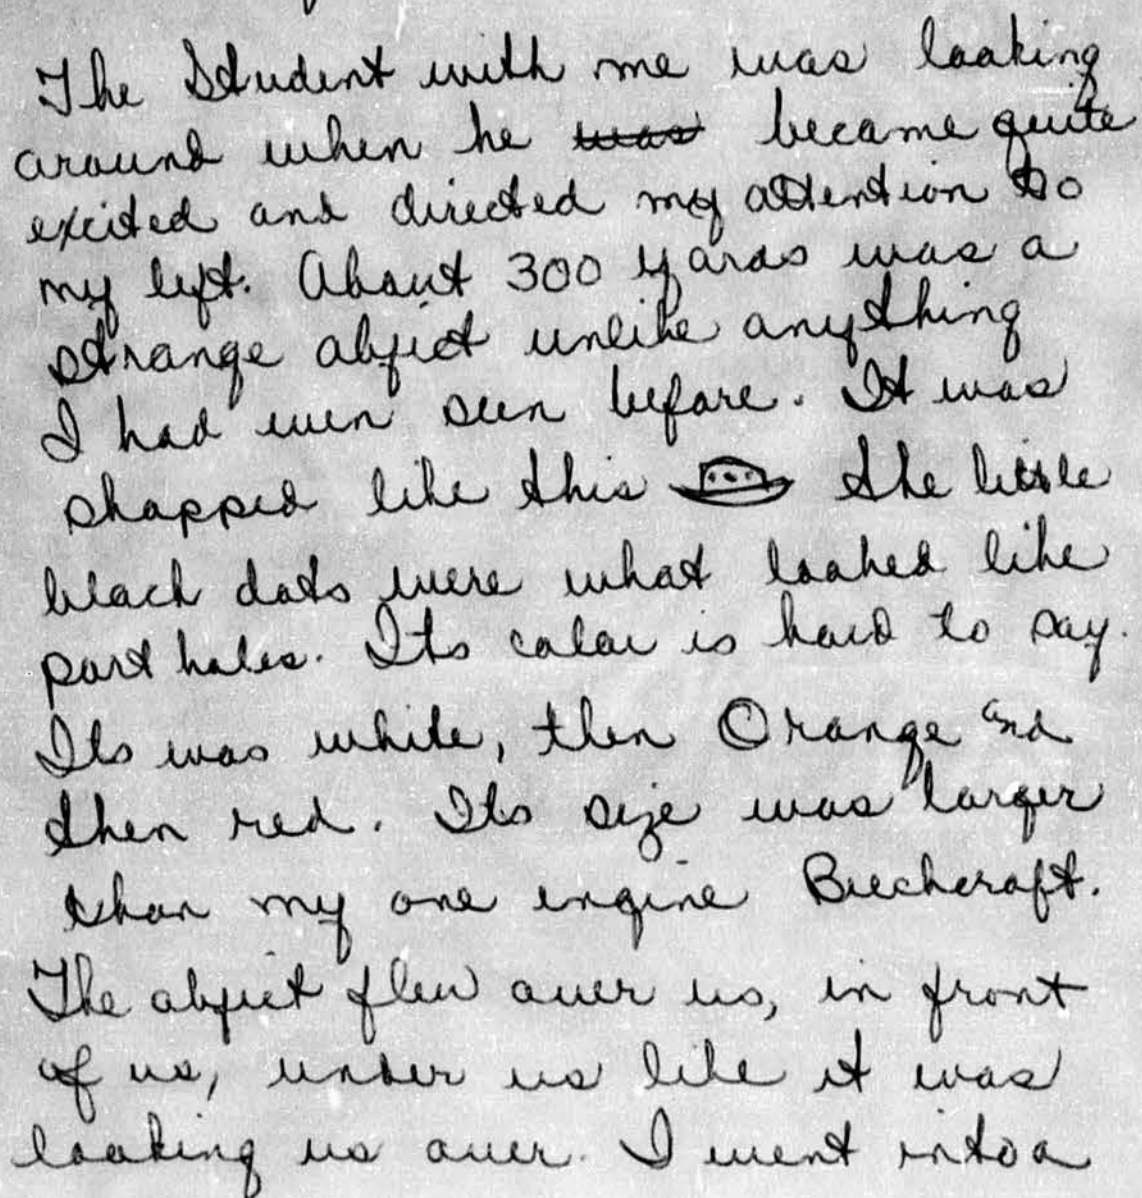 The Student with me was looking
around when he was became quite
excited and directed my attention to
my left. About 300 yards was a
strange object unlike anything
I had even seen before. It was
shapped like this the little
black dots were what looked like
port holes. Its color is hard to say.
Its was white, then Orange and
then red. Its size was larger
than my one engine Beechcraft.
The object flew over us, in front
of us, under us like it was
looking us over. I went into a